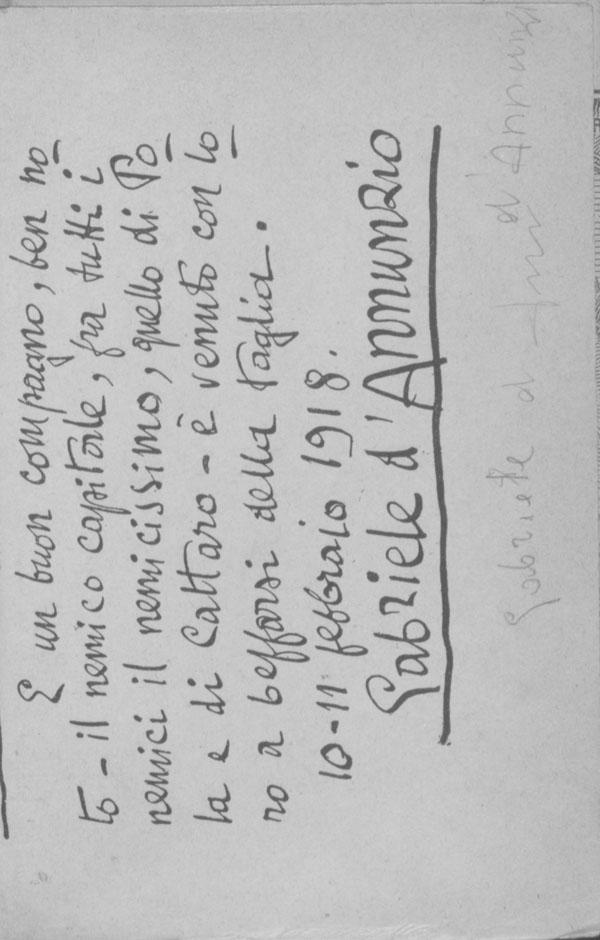 E un buon compagno, ben no
to - il nemico capitale, fra tutti i
nemici il nemicissimo, quello di Po
la e di Cattaro - è venuto con lo
ro a beffarsi della taglia.
10-11 febbraio 1918.
Gabriele d'Annunzio
Gabriele d d'Annunzi